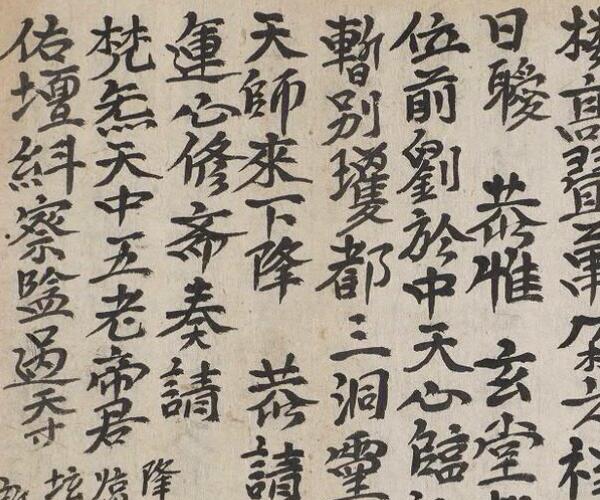 樓高疊
日曖 恭惟 玄堂
位前劉於中天心臨
暫别瓊都三洞靈
天師來下降 恭請
運心修斋奏請
梵炁天中五老帝君
佑壇糾察監過天寸
降
臨
壇